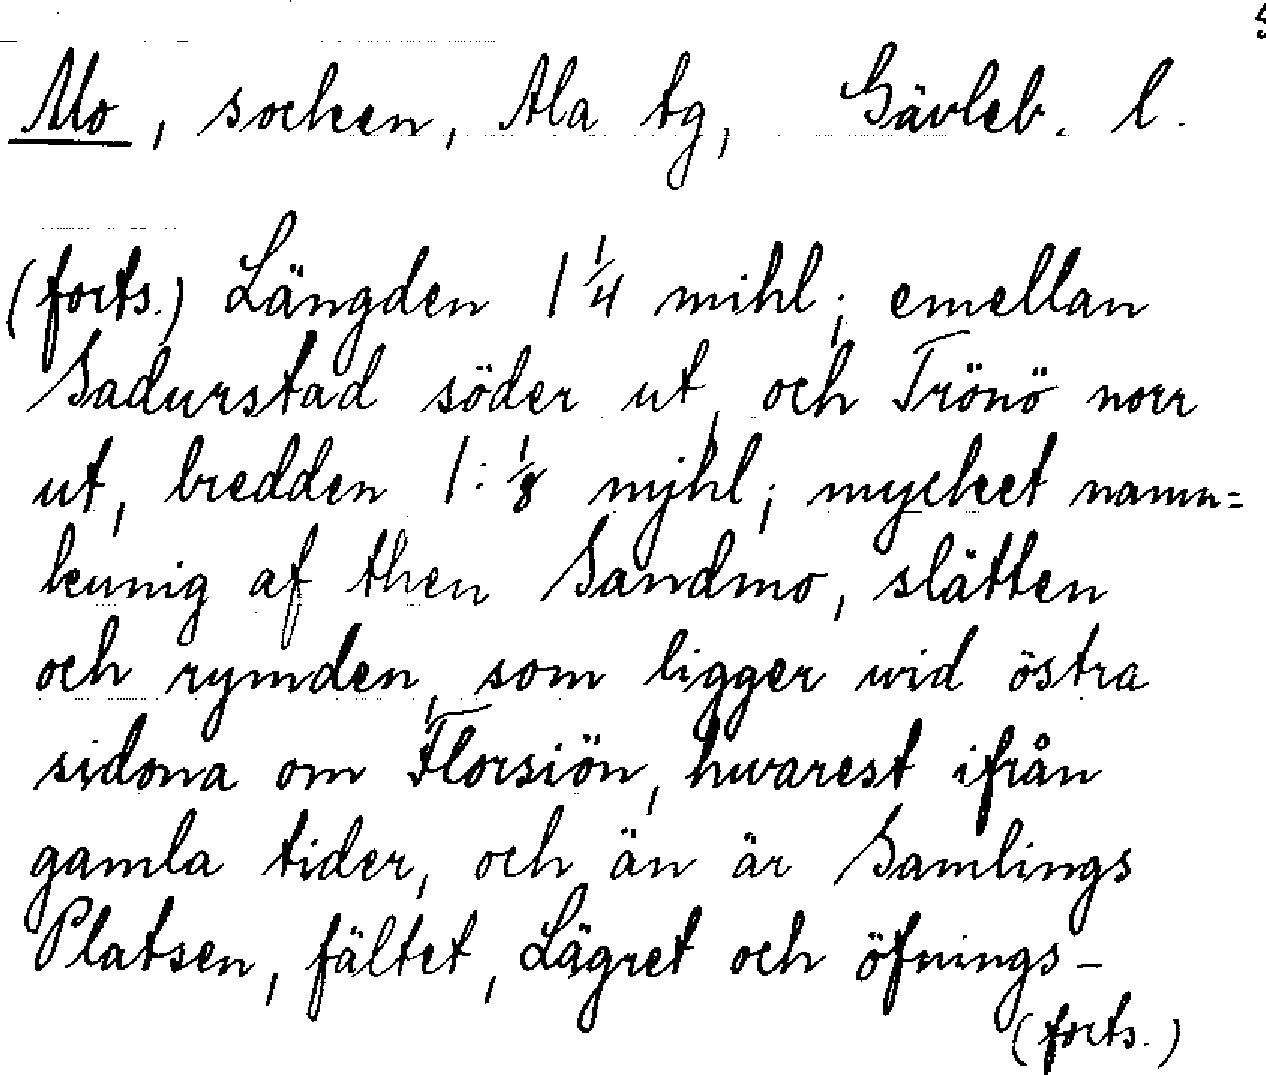 Mo, socken, Ala tg, Gävleb. l.
(forts.) Längden 1 1/4 mihl; emellan
Sadurstad söder ut, och Trönö norr
ut, bredden 1: 1/8 mjhl; mycket namn=
kunnig af then Sandmo, slätten
och rymden, som ligger wid östra
sidona om Florsiön, hwarest ifrån
gamla tider, och än är Samlings
Platsen, fältet, Lägret och öfnings-
(forts.)